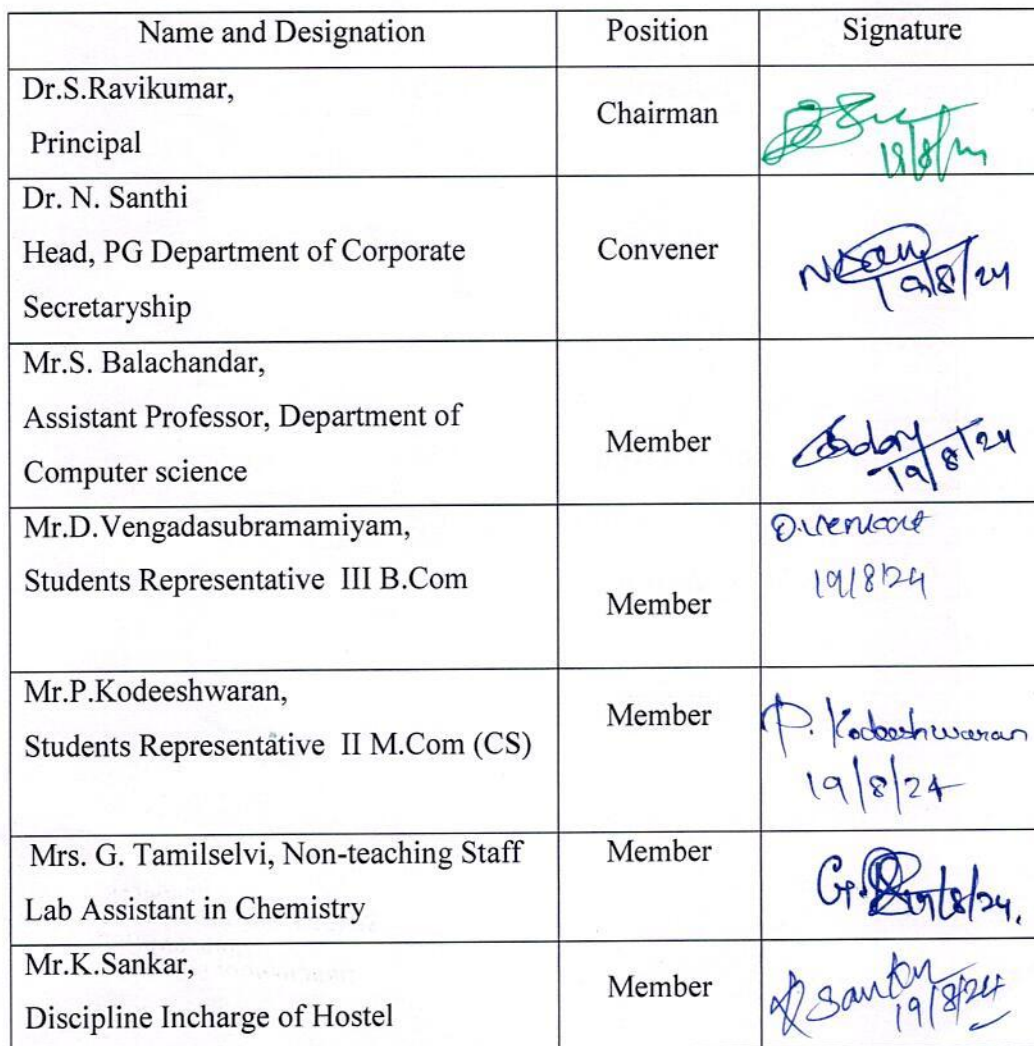 Name and Designation Position Signature
Dr.S.Ravikumar,
Principal
Chairman
19/8/24
Dr. N. Santhi
Head, PG Department of Corporate
Secretaryship
Convener
19/8/24
Mr.S. Balachandar,
Assistant Professor, Department of
Computer science
Member
19/8/24
Mr.D.Vengadasubramamiyam,
Students Representative III B.Com
Member
D.Venkat
19/8/24
Mr.P.Kodeeshwaran,
Students Representative II M.Com (CS)
Member
P. Kodeeshwaran
19/8/24
Mrs. G. Tamilselvi, Non-teaching Staff
Lab Assistant in Chemistry
Member
19/8/24.
Mr.K.Sankar,
Discipline Incharge of Hostel
Member
Sankar
19/8/24